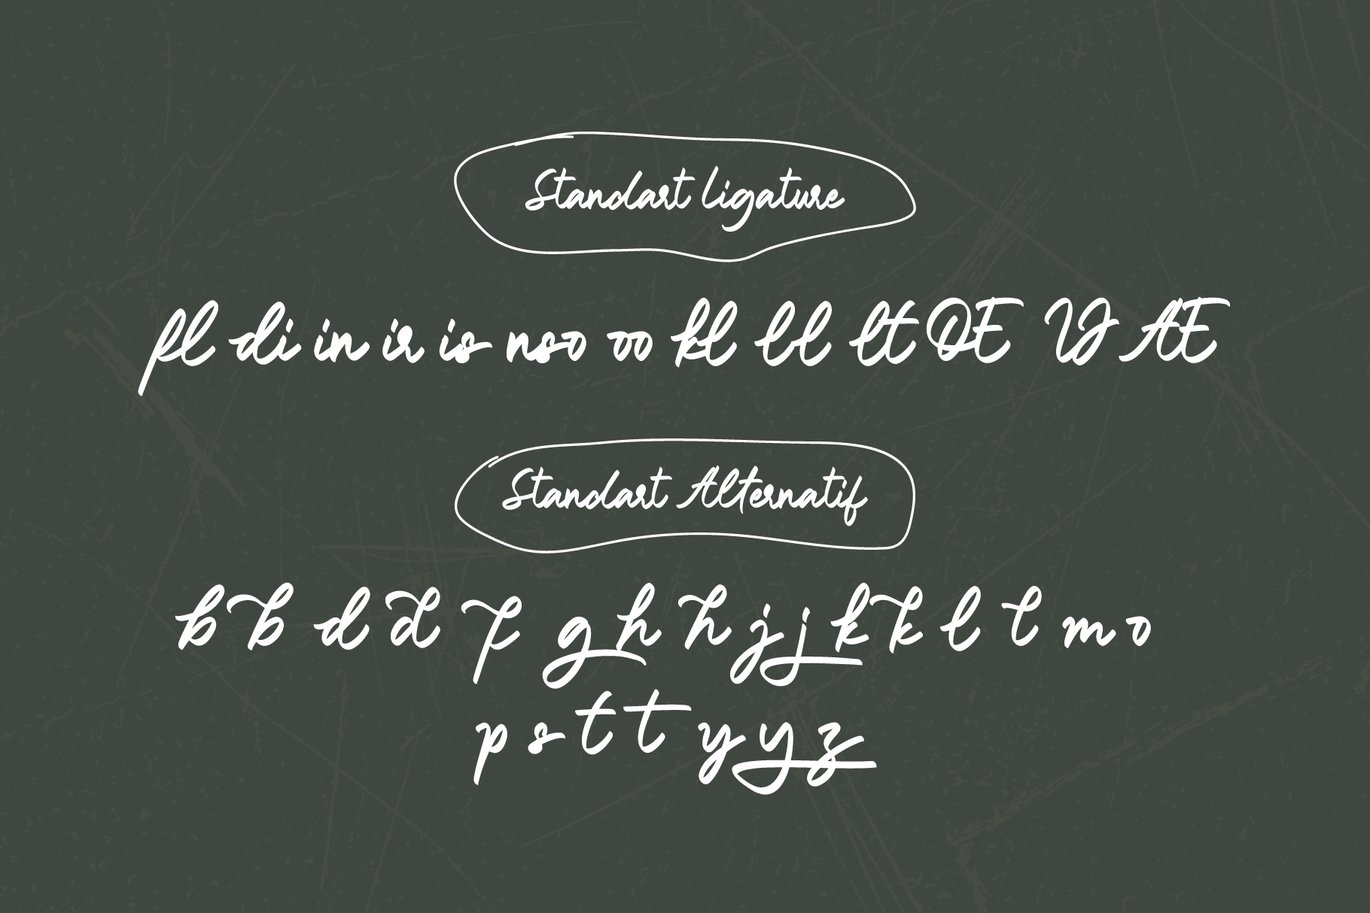 Standart ligature
fl di in ir is nso oo kl ll lt OE IJ AE
Standart Alternatif
b b d d f g h h j j k k l l m o
p s t t y y z